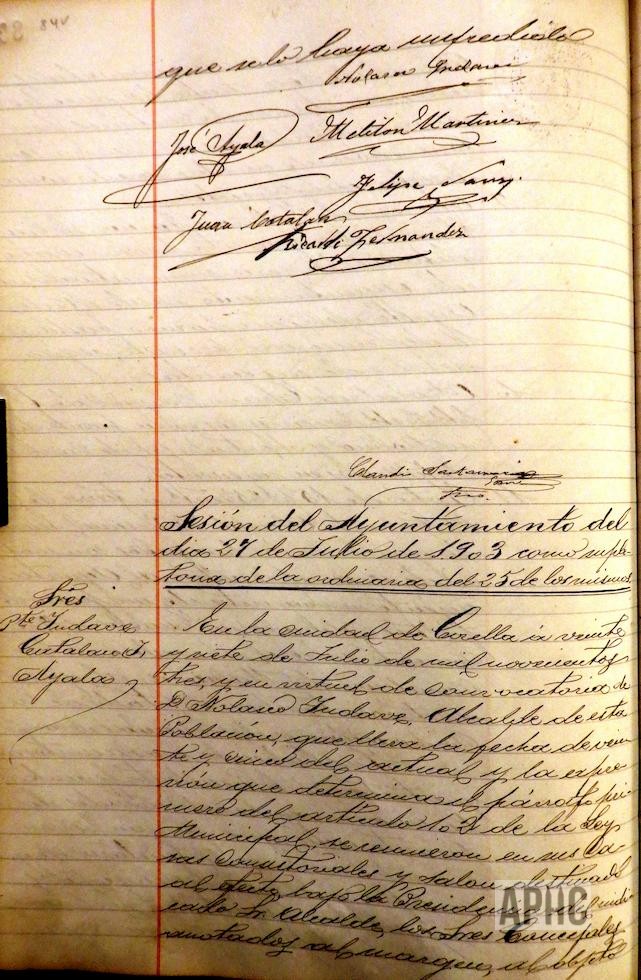 84V
que se lo haya impedido
Nolasco Indave
José Ayala Meliton Martinez
Felipe Sanz
Juan Catalan
Ricardo Fernandez
Claudio Santamaria
Srio.
Sesión del Ayuntamiento del
dia 27 de Julio de 1903 como suple-
toria de la ordinaria del 25 de los mismos
Sres
Pte Indave
Catalan J.
Ayala
En la ciudad de Corella á veinte
y siete de Julio de mil novecientos
tres, y en virtud de convocatoria de
D. Nolasco Indave, Alcalde de esta
Población, que lleva la fecha de vein
te y cinco del actual y la expre
sión que determina el párrafo pri
mero del artículo 102 de la Ley
Municipal, se reunieron en sus Ca
sas Consistoriales y salon destinado
al efecto bajo la Presidencia del indi
cado Sr. Alcalde, los Sres Concejales
anotados al margen, al objeto
APHC